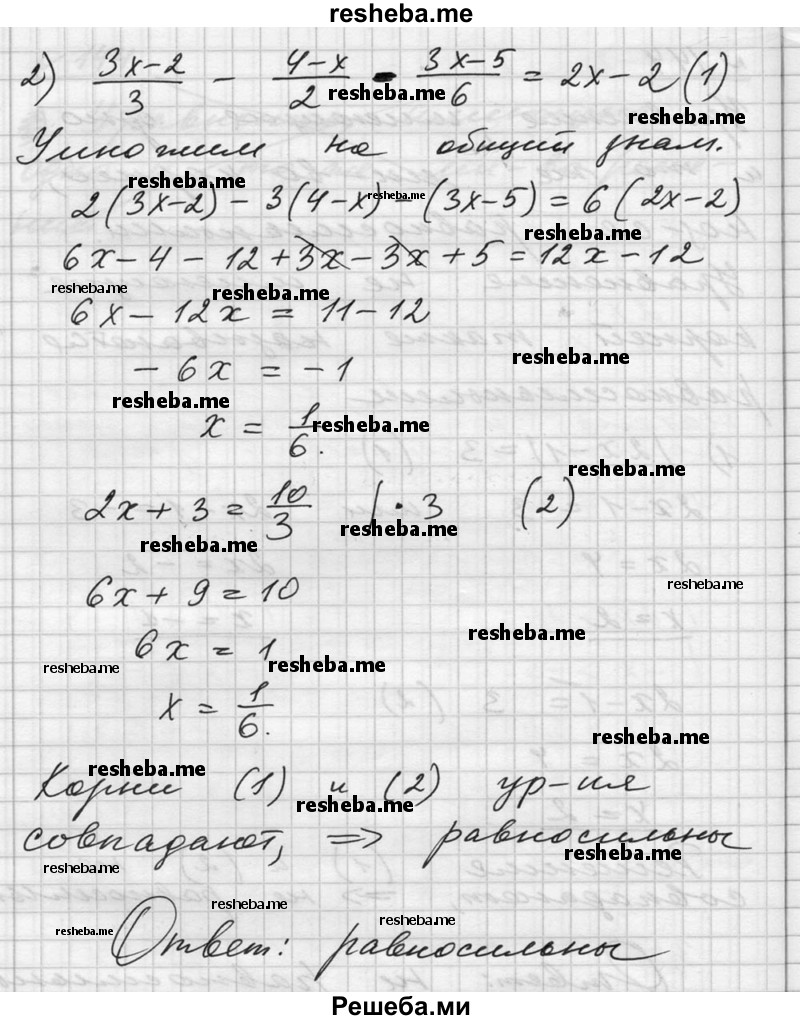 resheba.me
2) (3x-2)/3 - (4-x)/2 - (3x-5)/6 = 2x-2 (1)
resheba.me
resheba.me
Умножим на общий знам.
resheba.me resheba.me
2(3x-2) - 3(4-x) - (3x-5) = 6(2x-2)
resheba.me
6x-4-12+3x-3x+5=12x-12
resheba.me resheba.me
6x-12x = 11-12
resheba.me
-6x = -1
resheba.me
x = 1/6.
resheba.me
resheba.me
2x+3=10/3 |·3 (2)
resheba.me
resheba.me
6x+9=10
resheba.me
resheba.me
6x = 1
resheba.me resheba.me
x = 1/6.
resheba.me
resheba.me
Корни (1) и (2) ур-ия
resheba.me
совпадают, => равносильны
resheba.me
resheba.me
resheba.me
resheba.me resheba.me
Ответ: равносильны
Решеба.ми